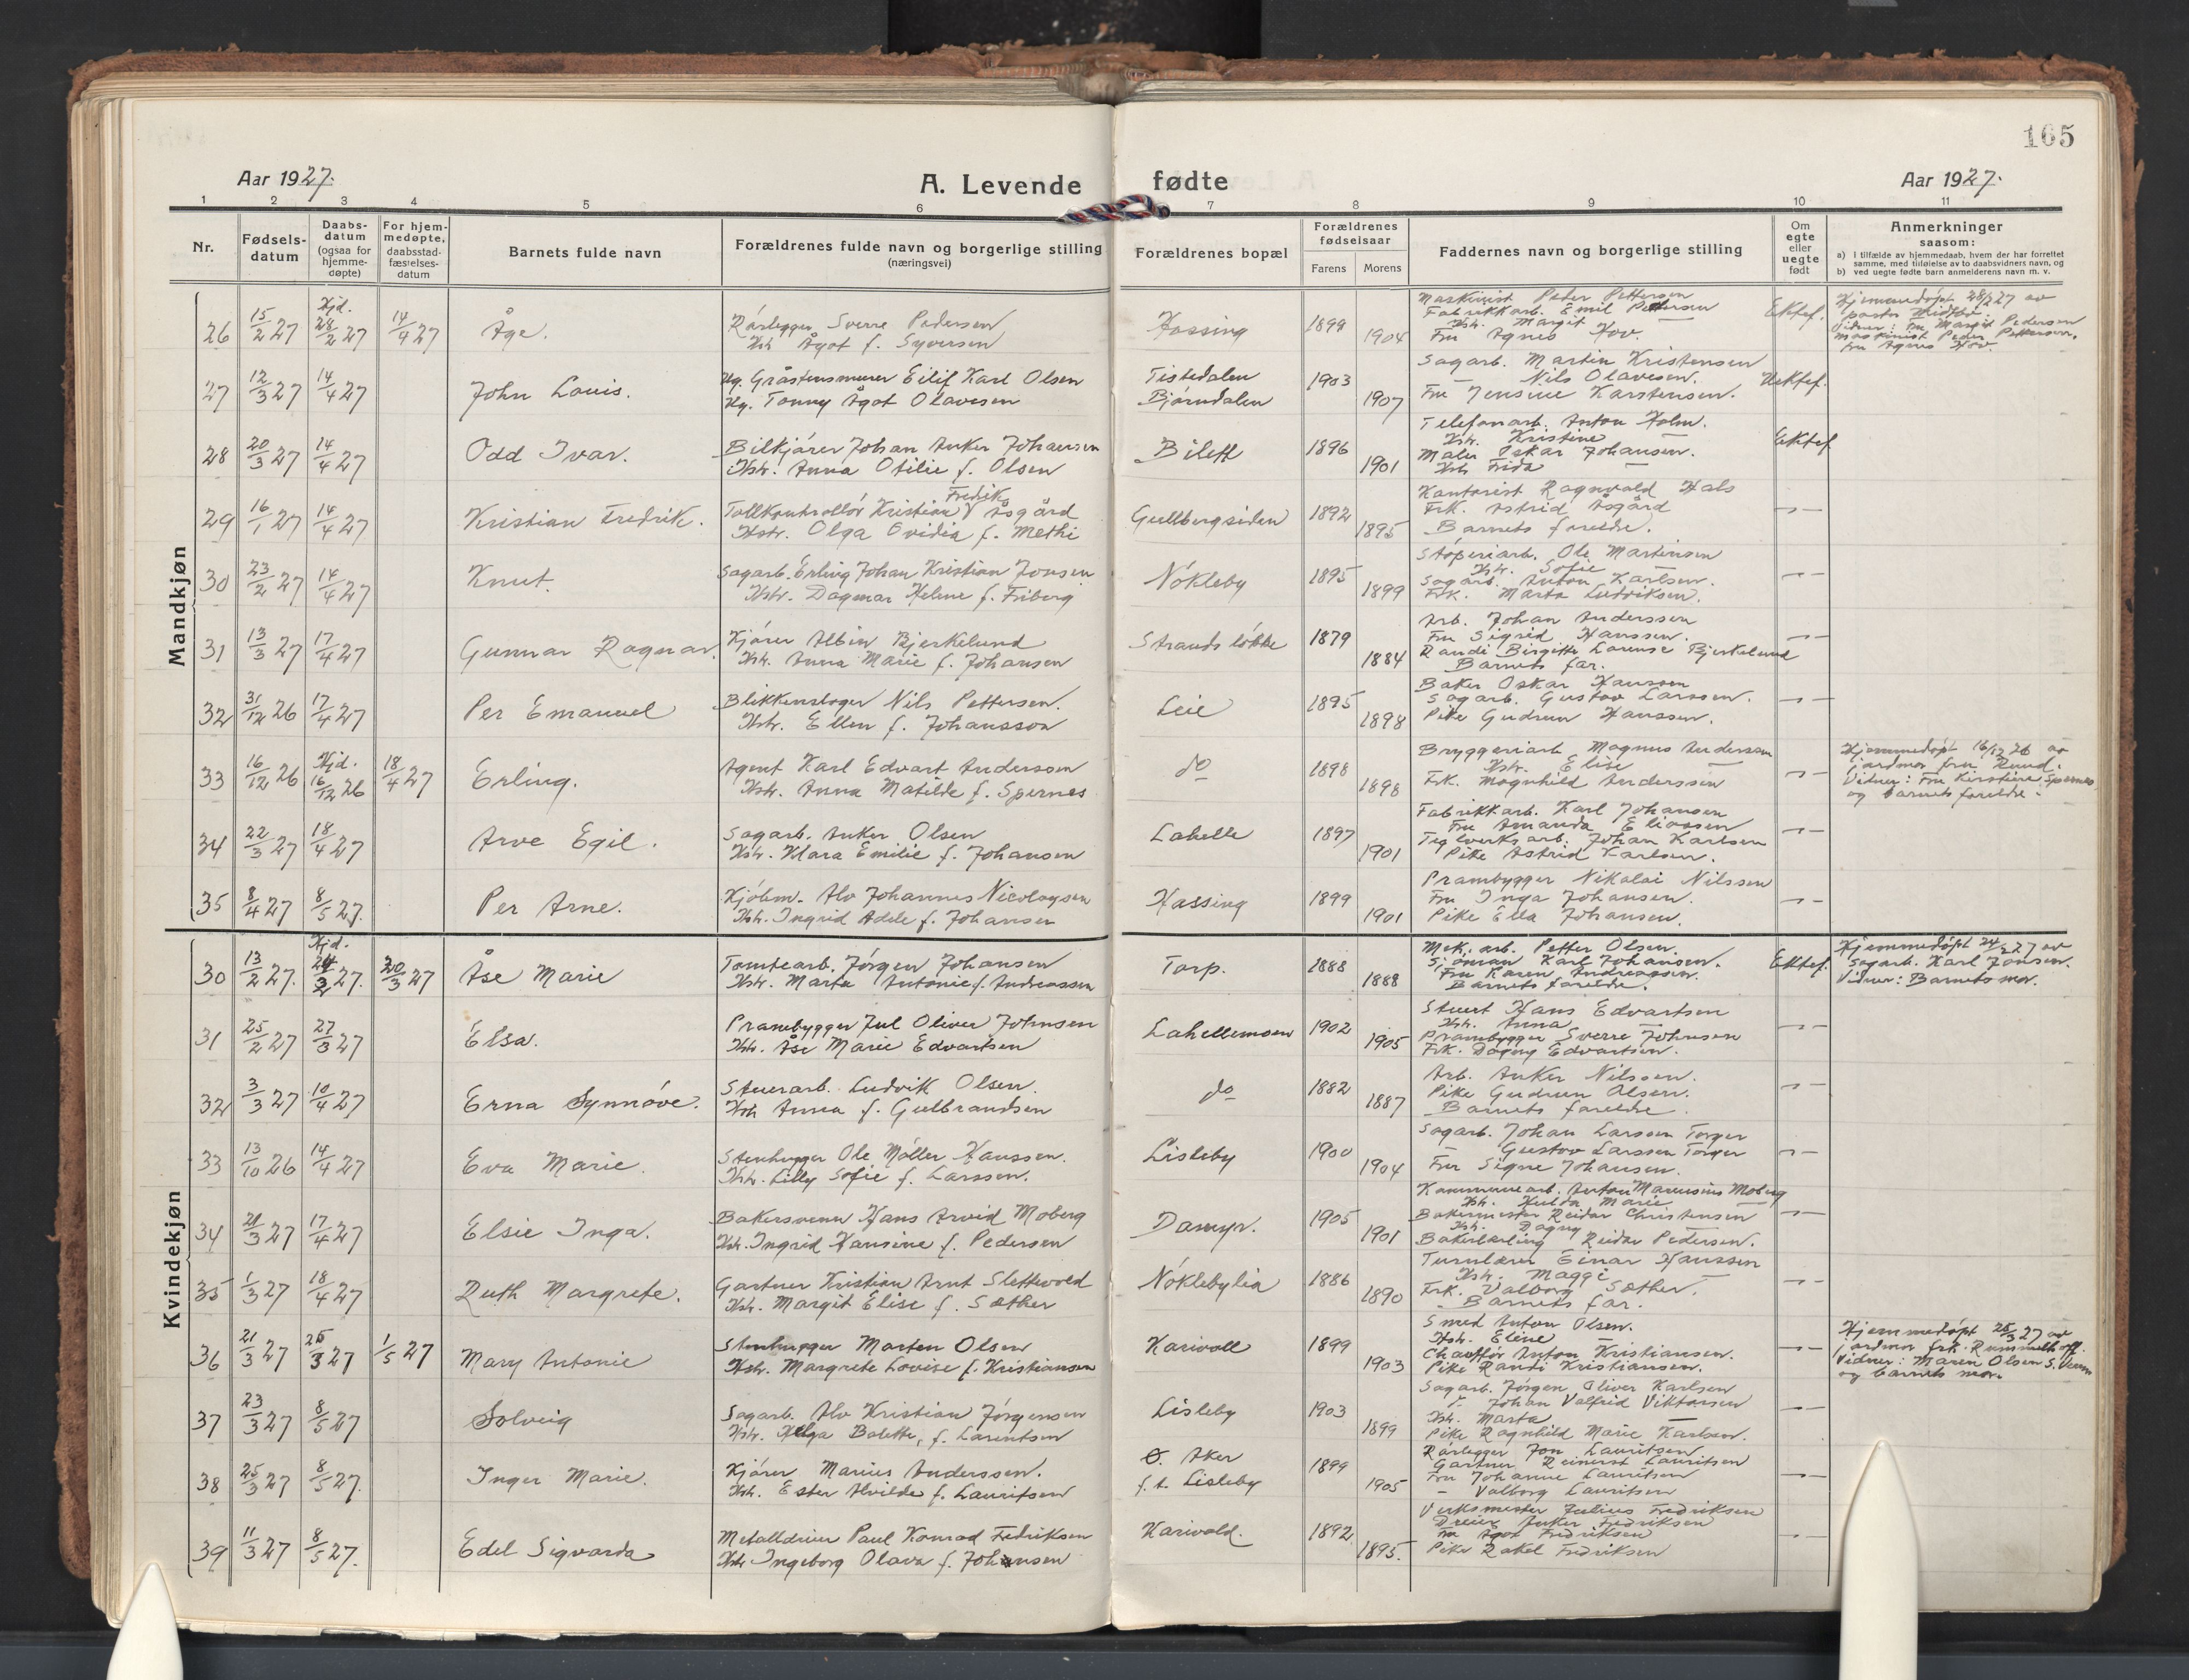 165
Aar 1927.
A. Levende fødte
Aar 1927.
1 2 3 4 5 6 7 8 9 10 11
Nr.
Fødsels-datum
Daabs-datum (ogsaa for hjemme-døpte)
For hjem-medøpte, daabsstad-fæstelses-datum
Barnets fulde navn
Forældrenes fulde navn og borgerlige stilling (næringsvei)
Forældrenes bopæl
Forældrenes fødselsaar
Farens Morens
Faddernes navn og borgerlige stilling
Om egte eller uegte født
Anmerkninger saasom:
a) I tilfælde av hjemmedaab, hvem der har forrettet samme, med tilføielse av to daabsvidners navn, og
b) ved uegte fødte barn anmelderens navn m. v.
Mandkjøn
26 15/2 27 Hjd. 28/2 27 14/4 27 Åge.
Rørlegger Sverre Pedersen
Hst. Ågot f. Syversen
Hassing 1899 1904
Maskinist Peder Pettersen
Fabrikkarb. Emil Pettersen
Hst. Margit —
Fru Agnes Hov.
Ektef.
Hjemmedøpt 28/2 27 av
pastor
Vidner: fru Margit Pedersen
Maskinist Peder Pettersen.
Fru Agnes Hov.
27 12/3 27 14/4 27 John Louis.
Ug. Gråstensmurer Eilif Karl Olsen
Ug. Tonny Ågot Olavesen
Tistedalen
Bjørndalen
1903 1907
Sagarb. Martin Kristensen
— Nils Olavesen.
Fru Jensine Karstensen.
Uektef.
28 20/3 27 14/4 27 Odd Ivar.
Bilkjører Johan Anker Johansen
Hstr. Anna Otilie f. Olsen
Bilett 1896 1901
Telefonarb. Anton Holm.
Hst. Kristine —
Maler Oskar Johansen.
Hst Frida —
Ektef.
29 16/1 27 14/4 27 Kristian Fredrik.
Tollkontrollør Kristian Fredrik Åsgård
Hstr. Olga Ovidia f. Methi
Gullbergsiden 1892 1895
Kontorist Ragnvald Hals
Frk. Astrid Åsgård
Barnets foreldre.
— " —
30 23/2 27 14/4 27 Knut.
Sagarb. Erling Johan Kristian Jonsen
Hstr. Dagmar Helene f. Friberg
Nökleby 1895 1899
Støperiarb. Ole Martinsen
Hst. Sofie —
Sagarb. Anton Karlsen.
Frk. Marta Ludviksen.
— " —
31 13/3 27 17/4 27 Gunnar Ragnar.
Kjører Albin Bjerkelund
Hst. Anna Marie f. Johansen
Strands løkke 1879 1884
Arb. Johan Anderssen
Fru Sigrid Hanssen.
Randi Birgitte Lovense Bjerkelund
Barnets far.
— " —
32 31/12 26 17/4 27 Per Emanuel
Blikkenslager Nils Pettersen.
Hst. Ellen f. Johansson
Leie 1895 1898
Baker Oskar Hanssen
Sagarb. Gustav Larssen.
Pike Gudrun Hanssen.
— " —
33 16/12 26 Hjd. 16/12 26 18/4 27 Erling.
Agent Karl Edvart Anderssen
Hst. Anna Matilde f. Spernes
do 1898 1898
Bryggeriarb. Magnus Anderssen
Hst. Elise —
Frk. Magnhild Anderssen
— " —
Hjemmedøpt 16/12 26 av
jordmor fru Lund.
Vidner: Fru Kirstine Spernes
og barnets foreldre.
34 22/3 27 18/4 27 Arve Egil.
Sagarb. Anker Olsen
Hst. Klara Emilie f. Johansen
Lahelle 1897 1901
Fabrikkarb. Karl Johansen
Fru Amanda Eliassen
Teglverksarb. Johan Karlsen
Pike Astrid Karlsen.
— " —
35 8/4 27 8/5 27. Per Arne.
Kjøbm. Alv Johannes Nicolaysen
Hst. Ingrid Adele f. Johansen
Hassing 1899 1901
Prambygger Nikolai Nilssen
Fru Inga Johansen.
Pike Ella Johansen.
— " —
Kvindekjøn
30 13/2 27. Hjd. 24/2 27. 20/3 27 Åse Marie
Tomtearb. Jørgen Johansen
Hst. Marta Antonie f. Andreassen
Torp. 1888 1888
Mek. arb. Petter Olsen.
Sjömann Karl Johansen.
Fru Karen Andreassen.
Barnets foreldre.
Ektef.
Hjemmedøpt 24/2 27 av
Sagarb. Karl Jonsen.
Vidner: Barnets mor.
31 25/2 27 27/3 27 Elsa.
Prambygger Jul Oliver Johnsen
Hst. Åse Marie Edvartsen
Lahellemoen 1902 1905
Stuert Hans Edvartsen
Hst. Anna —
Prambygger Sverre Johnsen
Frk. Dagny Edvartsen.
— " —
32 3/3 27 10/4 27 Erna Synnøve.
Stuerarb. Ludvik Olsen.
Hst Anna f. Gulbrandsen
do 1882 1887
Arb. Anker Nilssen.
Pike Gudrun Olsen.
Barnets foreldre.
— " —
33 13/10 26 14/4 27 Eva Marie.
Stenhugger Ole Møller Hanssen.
Hst. Lilly Sofie f. Larssen.
Lisleby 1900 1904
Sagarb. Johan Larssen Torger
— Gustav Larssen Torger
Fru Signe Johansen.
— " —
34 21/3 27 17/4 27 Elsie Inga.
Bakersvenn Hans Arvid Moberg
Hst. Ingrid Hansine f. Pedersen
Damyr. 1905 1901
Kommunearb. Anton Marensius Moberg
Hst. Hulda Marie —
Bakermester Reidar Christensen
Hst. Dagny —
Bakerlærling Reidar Pedersen.
— " —
35 1/3 27 18/4 27 Ruth Margrete.
Gartner Kristian Arnt Slettevold
Hst. Margit Elise f. Sæther
Nøklebylia 1886 1890
Turnlærer Einar Hanssen
Hst. Maggi —
Frk. Valborg Sæther.
Barnets far.
— " —
36 21/3 27 25/3 27 1/5 27 Mary Antonie
Stenhugger Marten Olsen
Hst. Margrete Lovise f. Kristiansen
Karivoll 1899 1903
Smed Anton Olsen.
Hst. Eline —
Chauffør Anton Kristiansen.
Pike Randi Kristiansen.
— " —
Hjemmedøpt 25/3 27 av
jordmor frk. Rummelhoff.
Vidner: Maren Olsen
og barnets mor.
37 23/3 27 8/5 27 Solveig
Sagarb. Alv Kristian Jörgensen
Hst. Helga Bolette, f. Larentsen
Lisleby 1903 1899
Sagarb. Jørgen Oliver Karlsen
do Johan Valfrid Viktorsen
Hst. Marta —
Pike Ragnhild Marie Karlsen.
— " —
38 25/3 27 8/5 27. Inger Marie.
Kjörer Marius Anderssen.
Hst. Ester Alvilde f. Lauritsen
Ø. Aker
f. t. Lisleby
1899 1905
Rørlegger Jon Lauritsen
Gartner Reinert Lauritsen
Fru Johanne Lauritsen
— Valborg Lauritsen
— " —
39 11/3 27 8/5 27. Edel Sigvarda
Metalldreier Paul Konrad Fredriksen
Hst Ingeborg Olava f. Johansen
Karivold. 1892 1895.
Verksmester Julius Fredriksen
Dreier Anker Fredriksen
Fru Ågot Fredriksen
Pike Rakel Fredriksen
— " —